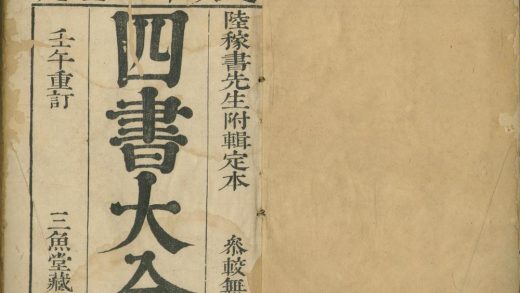 陸稼書先生附輯定本　參較無
四書大全
壬午重訂　三魚堂藏